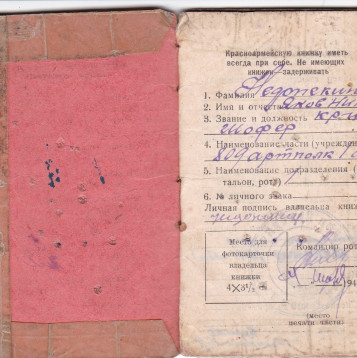 Красноармейскую книжку иметь
всегда при себе. Не имеющих
книжки—задерживать
1. Фамилия
2. Имя и отчест Яков
3. Звание и должность кр
Шофер
4. Наименование части (учрежден
809 артполк
5. Наименование подразделения (
тальон, рота)
6. № личного знака
Личная подпись владельца книж
Место для
фотокарточки
владельца
книжки
4×3½ см
Командир рот
194
(место
печати части)